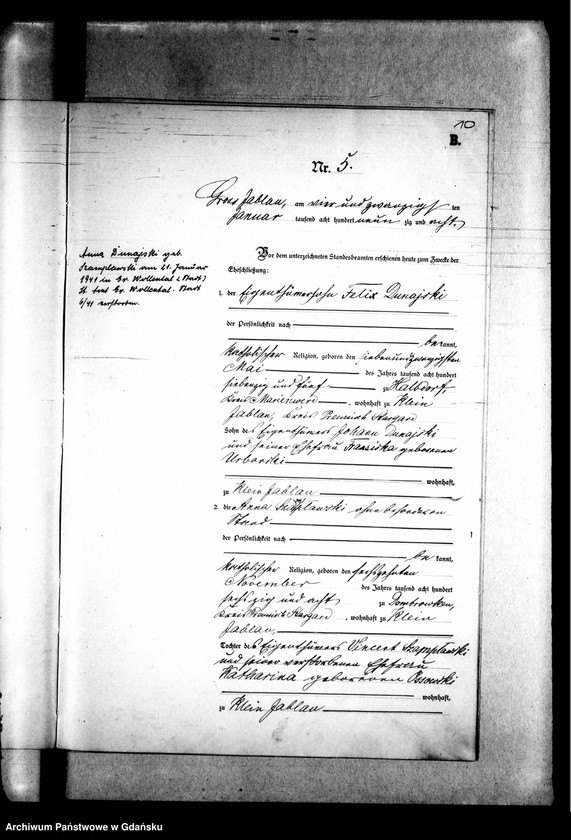 10
B.
Nr. 5.
Gross Jablau, am vier und zwanzigsten
Januar tausend acht hundert neun zig und acht.
Anna Dunajski geb.
Szamplawski am 21. Januar
1941 in Gr. Wollental (Stadt)
St. Amt Gr. Wollental.
6/41 verstorben.
Vor dem unterzeichneten Standesbeamten erschienen heute zum Zwecke der
Eheschließung:
1. der Eigenthümersohn Felix Dunajski
der Persönlichkeit nach
be kannt,
katholischer Religion, geboren den siebenundzwanzigsten
Mai des Jahres tausend acht hundert
siebenzig und fünf zu Halbdorf,
Kreis Marienwerder, wohnhaft zu Klein
Jablau, Kreis Preussisch Stargard
Sohn des Eigenthümers Johann Dunajski
und seiner Ehefrau Franziska geborenen
Urbanski
wohnhaft,
zu Klein Jablau
2. die Anna Szamplawski ohne besonderen
Stand
der Persönlichkeit nach
be kannt,
katholischer Religion, geboren den sechszehnten
November des Jahres tausend acht hundert
sechs zig und acht zu Dombrowken,
Kreis Preussisch Stargard, wohnhaft zu Klein
Jablau,
Tochter des Eigenthümers Vincent Szamplawski
und seiner verstorbenen Ehefrau
Katharina geborenen Ossowski
wohnhaft,
zu Klein Jablau
Archiwum Państwowe w Gdańsku